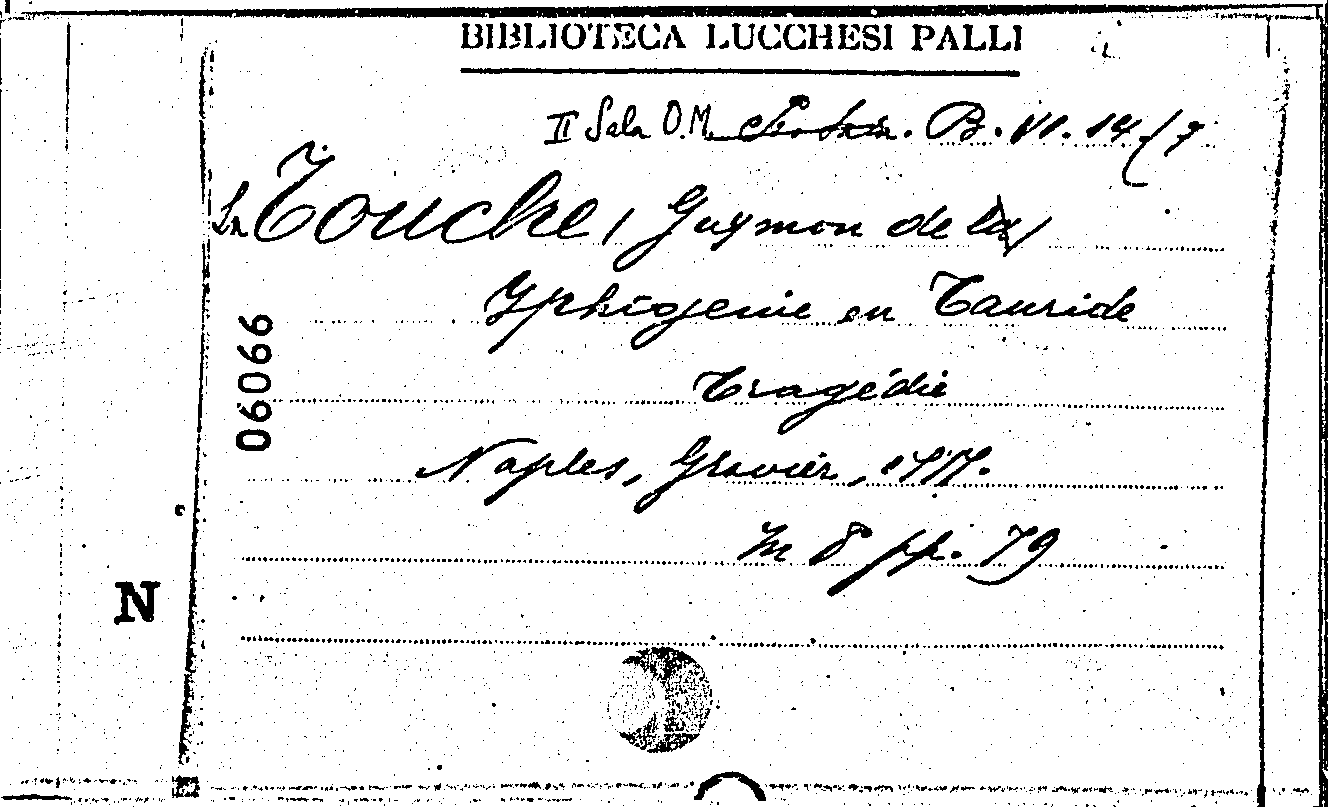 BIBLIOTECA LUCCHESI PALLI
II Sala O.M. B. VI. 14 (7
La Touche, Guymon de la
Iphigenie en Tauride
Tragédie
Naples, Gravier, 1777.
In 8 pp. 79
06066
N